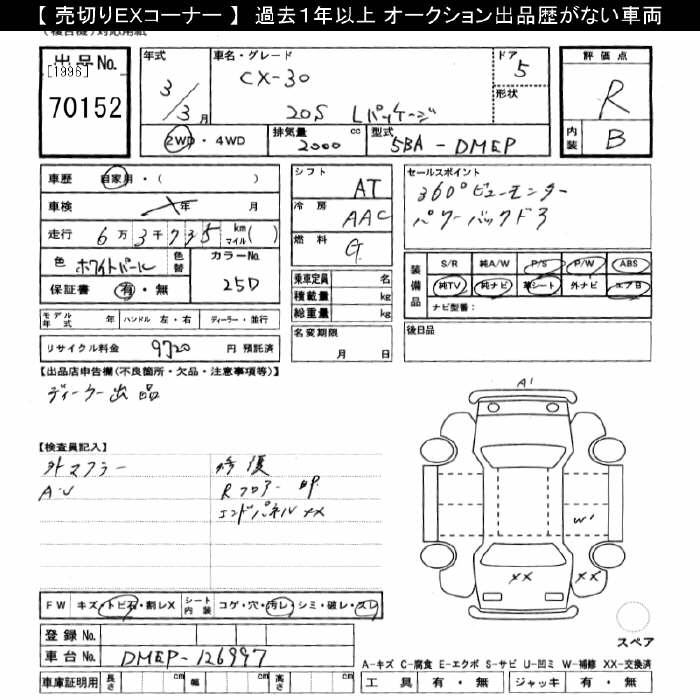 【 売切りEXコーナー 】 過去1年以上 オークション出品歴がない車両
出品No. [1996]
70152
年式 3/3月
車名・グレード CX-30
20S Lパッケージ
ドア 5
形状
評価点 R
内装 B
2WD・4WD 排気量 2000 cc 型式 5BA-DMEP
車歴 自家用・( )
車検 年 月
走行 6万3千735 km マイル( )
色 ホワイトパール 色替 カラーNo. 25D
保証書 有・無
シフト AT
冷房 AAC
燃料 G
乗車定員 名
積載量 kg
総重量 kg
名変期限
月 日
セールスポイント
360°ビューモニター
パワーバックドア
装備品 S/R 純A/W P/S P/W ABS
純TV 純ナビ 革シート 外ナビ エアB
ナビ型番:
後日品
モデル年式 年 ハンドル 左・右 ディーラー・並行
リサイクル料金 9720 円 預託済
【出品店申告欄(不良箇所・欠品・注意事項等)】
ディーラー出品
【検査員記入】
外マフラー 修復
A・U Rフロアー
エンドパネルXX
A1
W1
XX XX
スペア
FW キズ・トビ石・割レX シート内装 コゲ・穴・汚レ・シミ・破レ・スレ
登録No.
車台No. DMEP-126997
車庫証明用 長さ cm 幅 cm 高さ cm
A-キズ C-腐食 E-エクボ S-サビ U-凹ミ W-補修 XX-交換済
工具 有・無 ジャッキ 有・無